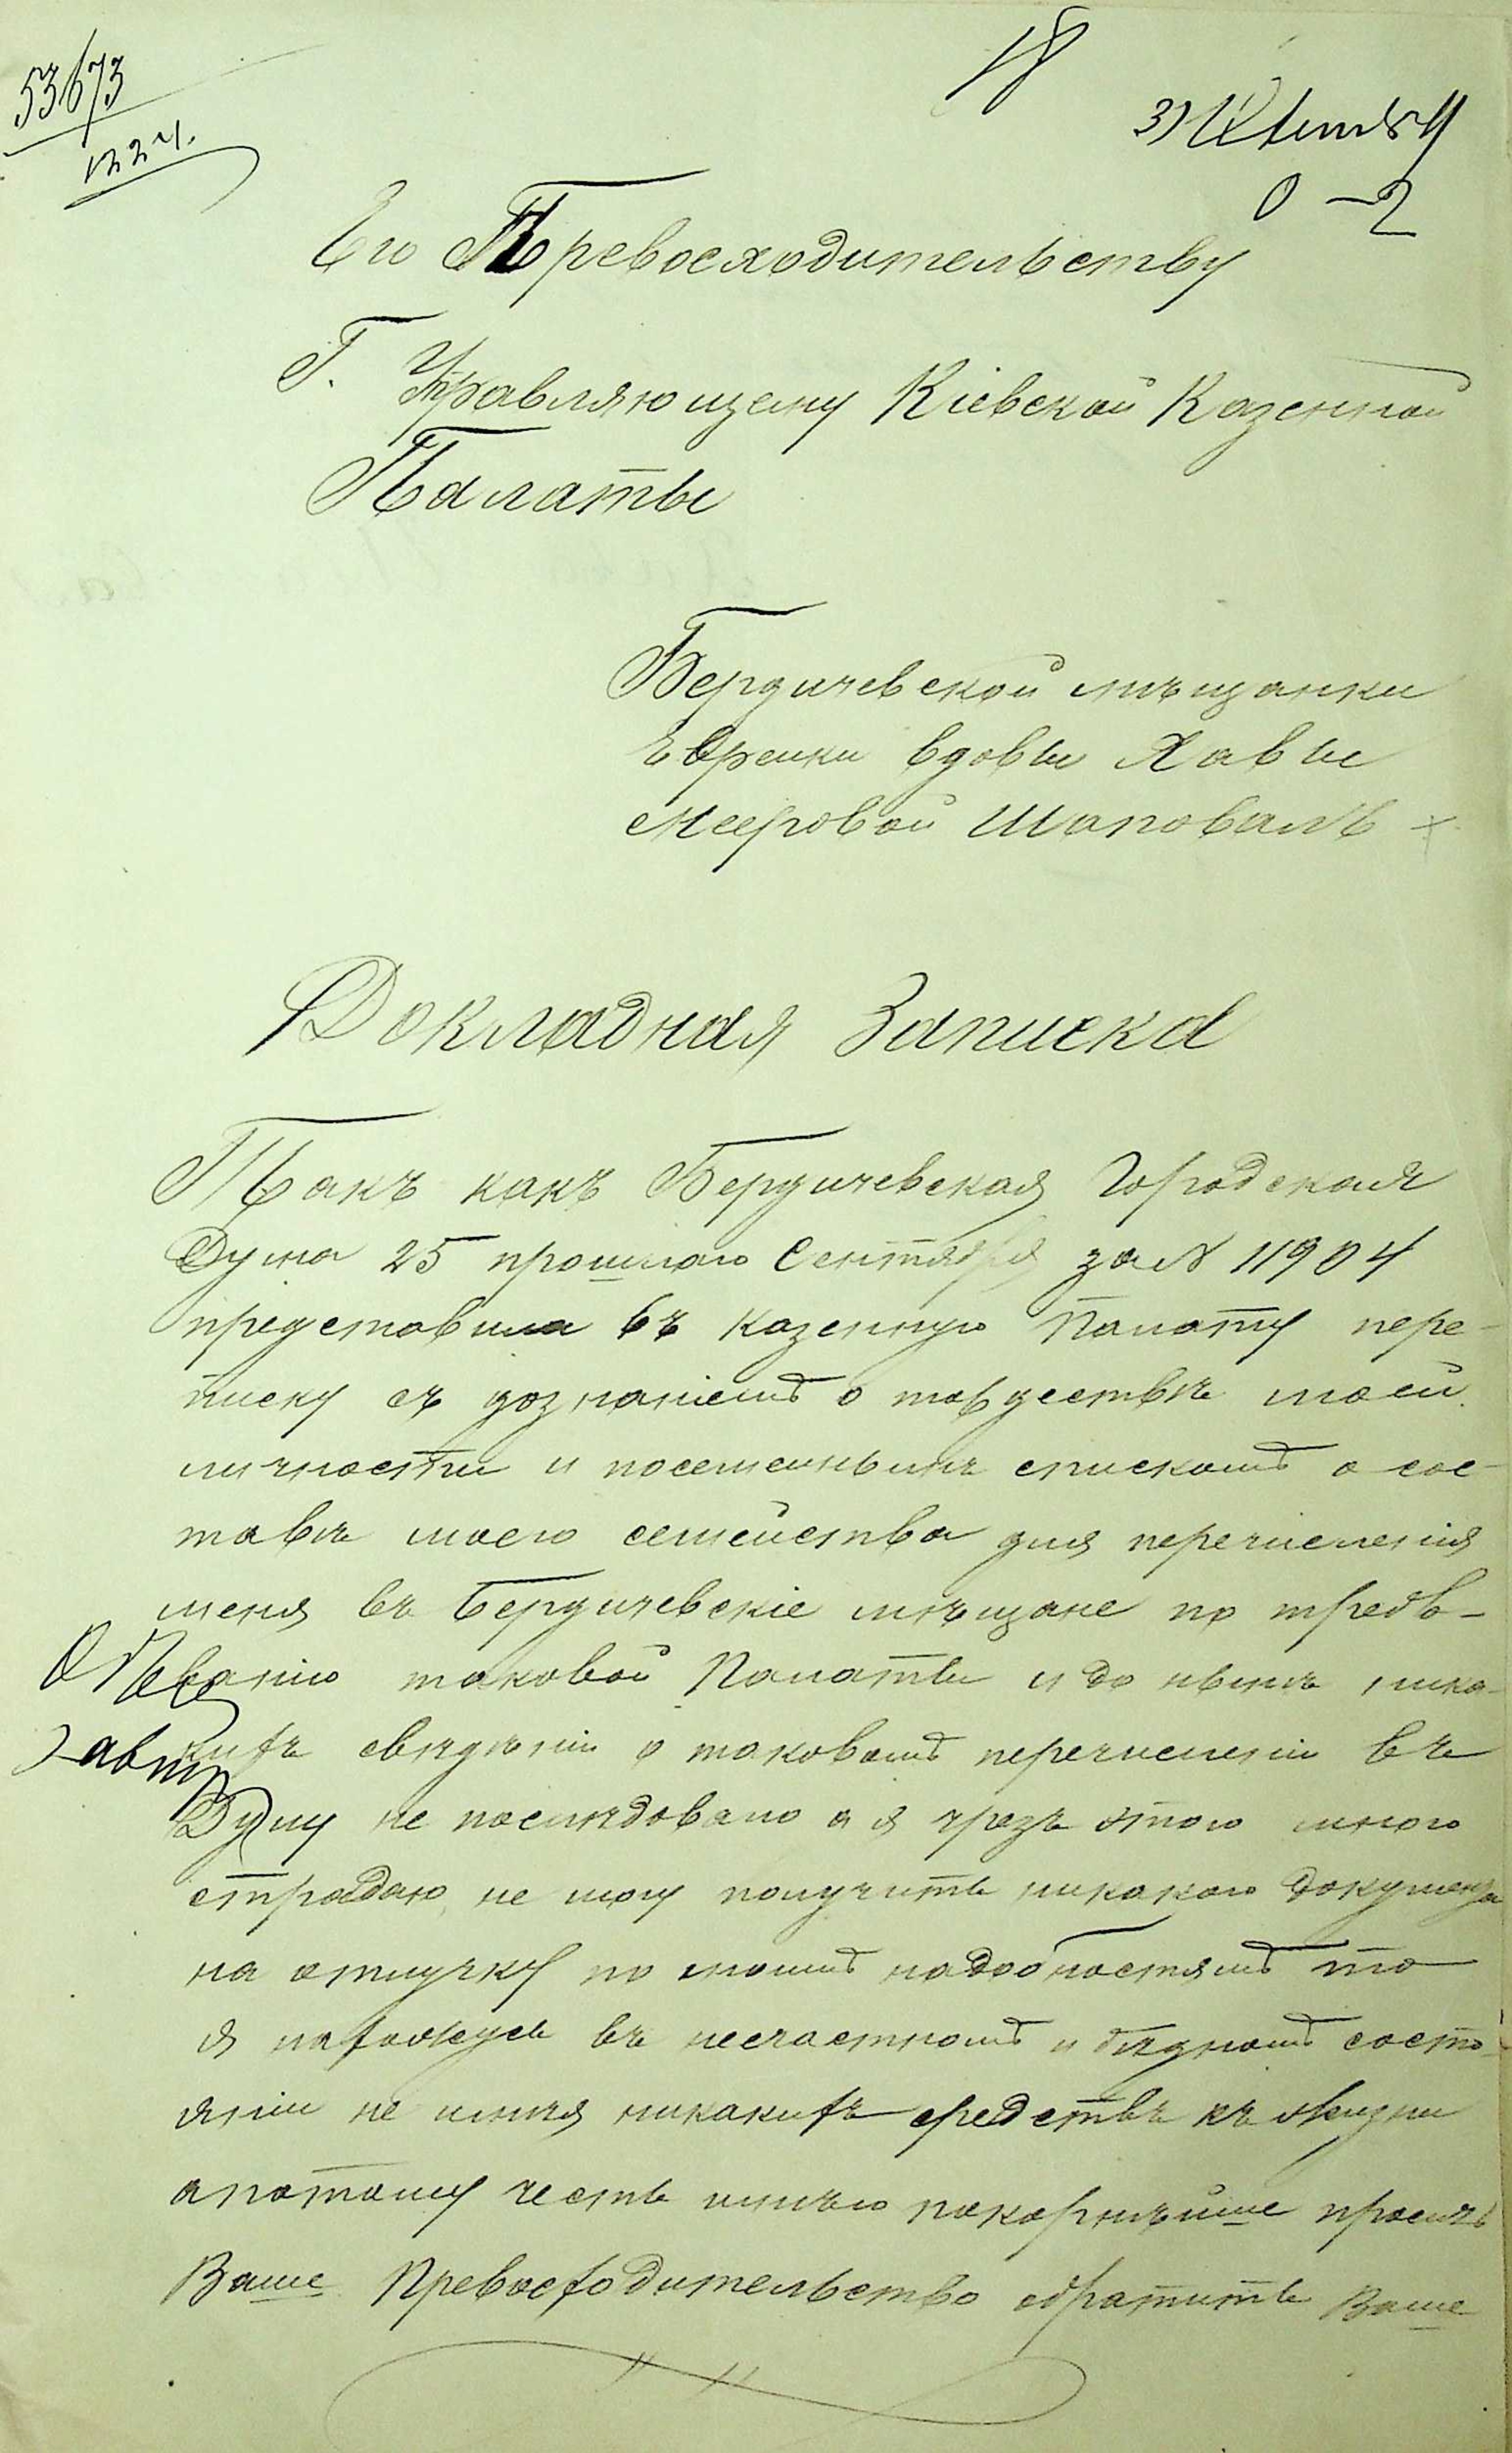 53673
18
Его Превосходительству
Г. Управляющему Кіевской Казенной
Палаты
Бердичевской мѣщанки
Еврейки вдовы Хавы
Мееровой Шаповалъ
Докладная Записка
Такъ какъ Бердичевская Городская
Дума 25 прошлаго Сентября за № 11904
представила въ Казенную Палату пере-
писку съ дознаніемъ о тождествѣ моей
личности и посемейнымъ спискомъ о сос-
тавѣ моего семейства для перечисленія
меня въ Бердичевскіе мѣщане по требо-
ванію таковой Палаты и до нынѣ ника-
кихъ свѣдѣній о таковомъ перечисленіи въ
Думу не послѣдовало а я чрезъ этого много
страдаю, не могу получить никакого документа
на отлучку по моимъ надобностямъ то
я нахожусь въ несчастномъ и бѣдномъ состо-
яніи не имѣя никакихъ средствъ къ жизни
а потому честь имѣю покорнѣйше просить
Ваше Превосходительство обратить Ваше